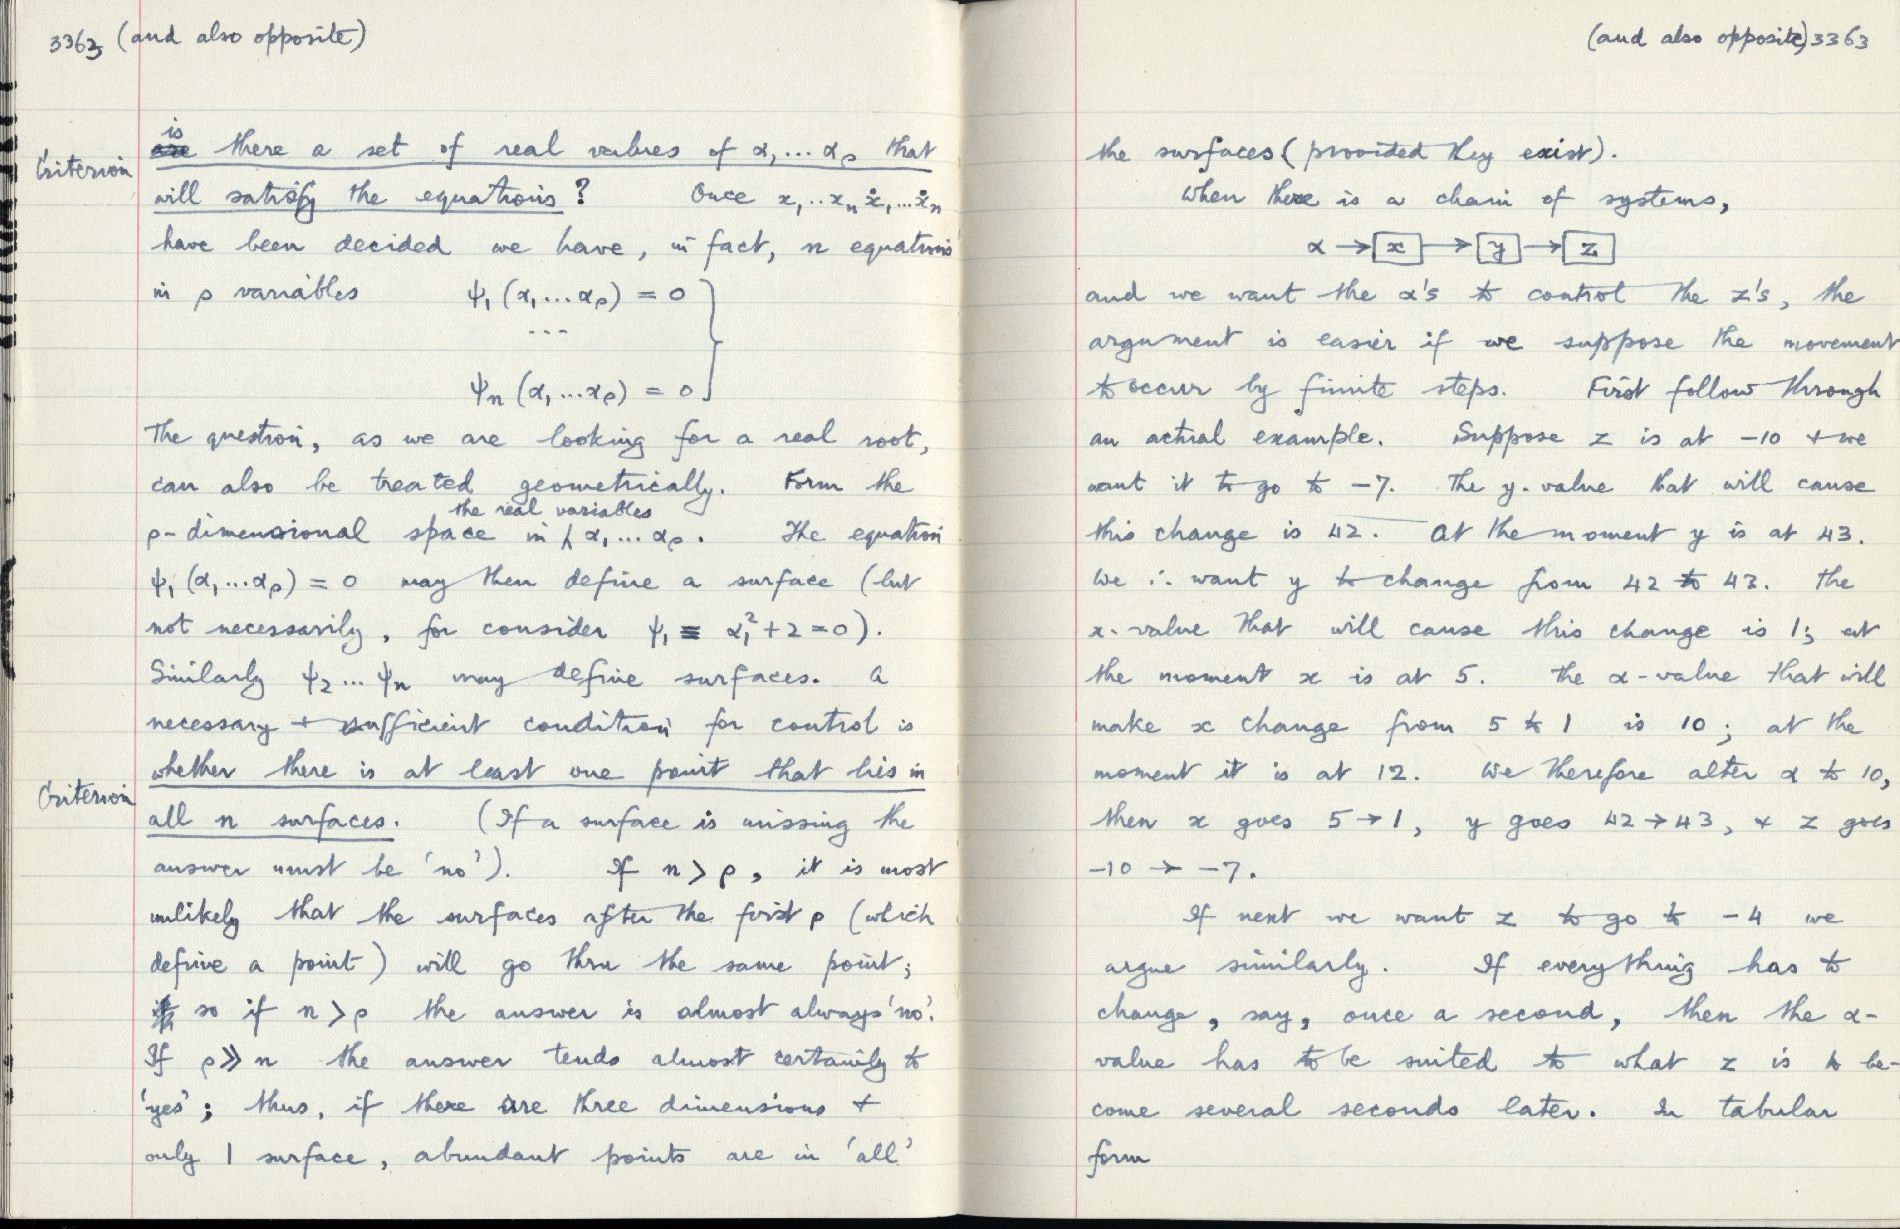 3363 (and also opposite)
is
Criterion are there a set of real values of α₁ ... αρ that
will satisfy the equations? Once x₁ .. xₙ ẋ₁ ... ẋₙ
have been decided we have, in fact, n equations
in ρ variables ψ₁ (α₁ ... αρ) = 0
...
ψₙ (α₁ ... αρ) = 0
The question, as we are looking for a real root,
can also be treated geometrically. Form the
the real variables
ρ-dimensional space in ⁁ α₁ ... αρ. The equation
ψ₁ (α₁ ... αρ) = 0 may then define a surface (but
not necessarily, for consider ψ₁ ≡ α₁² + 2 = 0).
Similarly ψ₂ ... ψₙ may define surfaces. A
necessary + sufficient condition for control is
whether there is at least one point that lies in
Criterion all n surfaces. (If a surface is missing the
answer must be 'no'). If n > ρ, it is most
unlikely that the surfaces after the first ρ (which
define a point) will go thru the same point;
so if n > ρ the answer is almost always 'no'.
If ρ ≫ n the answer tends almost certainly to
'yes'; thus, if there are three dimensions +
only 1 surface, abundant points are in 'all'
(and also opposite) 3363
the surfaces (provided they exist).
When there is a chain of systems,
α → x → y → z
and we want the α's to control the z's, the
argument is easier if we suppose the movement
to occur by finite steps. First follow through
an actual example. Suppose z is at -10 + we
want it to go to -7. The y-value that will cause
this change is 42. At the moment y is at 43.
We ∴ want y to change from 42 to 43. The
x-value that will cause this change is 1; at
the moment x is at 5. The α-value that will
make x change from 5 to 1 is 10; at the
moment it is at 12. We therefore alter α to 10,
then x goes 5 → 1, y goes 42 → 43, + z goes
-10 → -7.
If next we want z to go to -4 we
argue similarly. If everything has to
change, say, once a second, then the α-
value has to be suited to what z is to be-
come several seconds later. In tabular
form